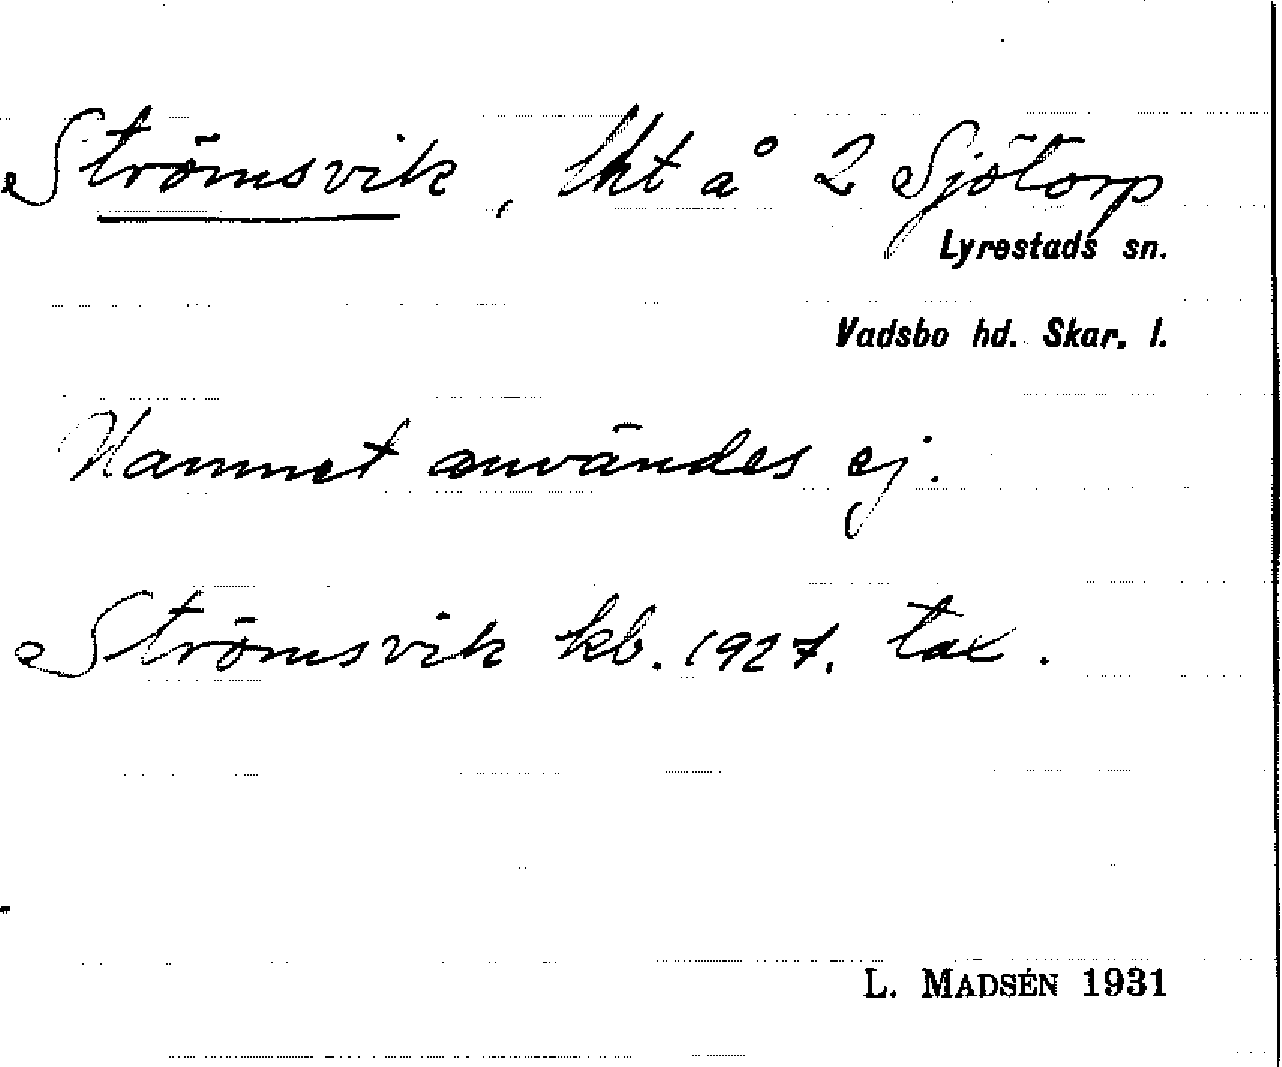 Strömsvik, lht å 2 Sjötorp
Lyrestads sn.
Vadsbo hd. Skar. l.
Namnet användes ej.
Strömsvik kb. 1927. tax.
L. MADSÉN 1931